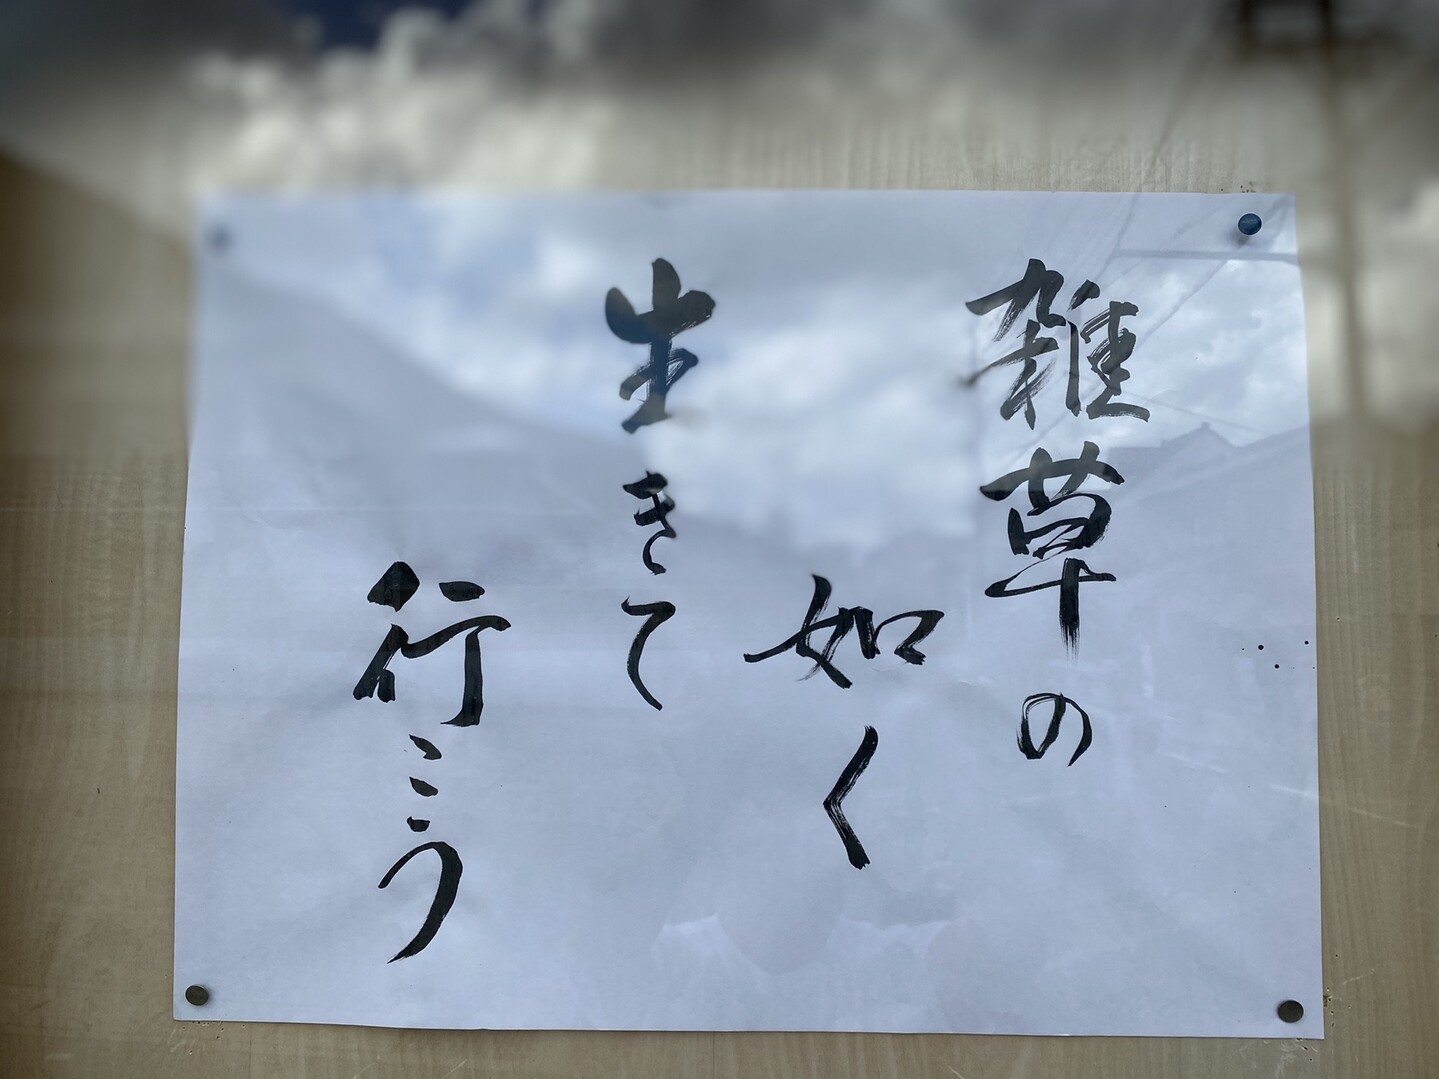 雑草の
如く
生きて
行こう